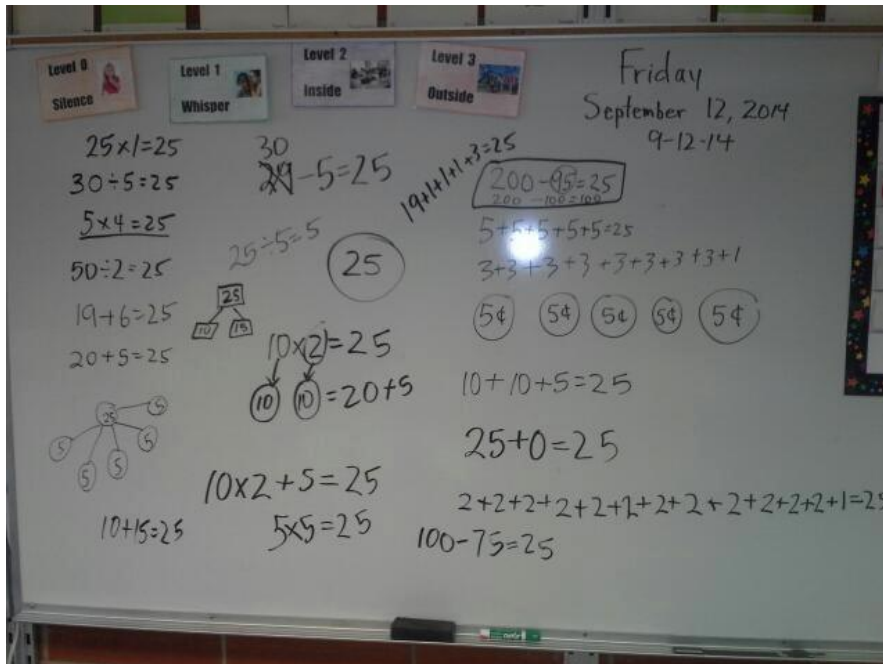 Level 0
Silence
Level 1
Whisper
Level 2
Inside
Level 3
Outside
Friday
September 12, 2014
9-12-14
25×1=25
30÷5=25
5×4=25
50÷2=25
19+6=25
20+5=25
25
5
5
5
5
5
10+15=25
30
29-5=25
25÷5=5
25
25
10
15
10×2=25
10 10 =20+5
10×2+5=25
5×5=25
19+1+1+1+3=25
200-95=25
200-100=100
5+5+5+5+5=25
3+3+3+3+3+3+3+3+1
5¢ 5¢ 5¢ 5¢ 5¢
10+10+5=25
25+0=25
2+2+2+2+2+2+2+2+2+2+2+2+1=25
100-75=25